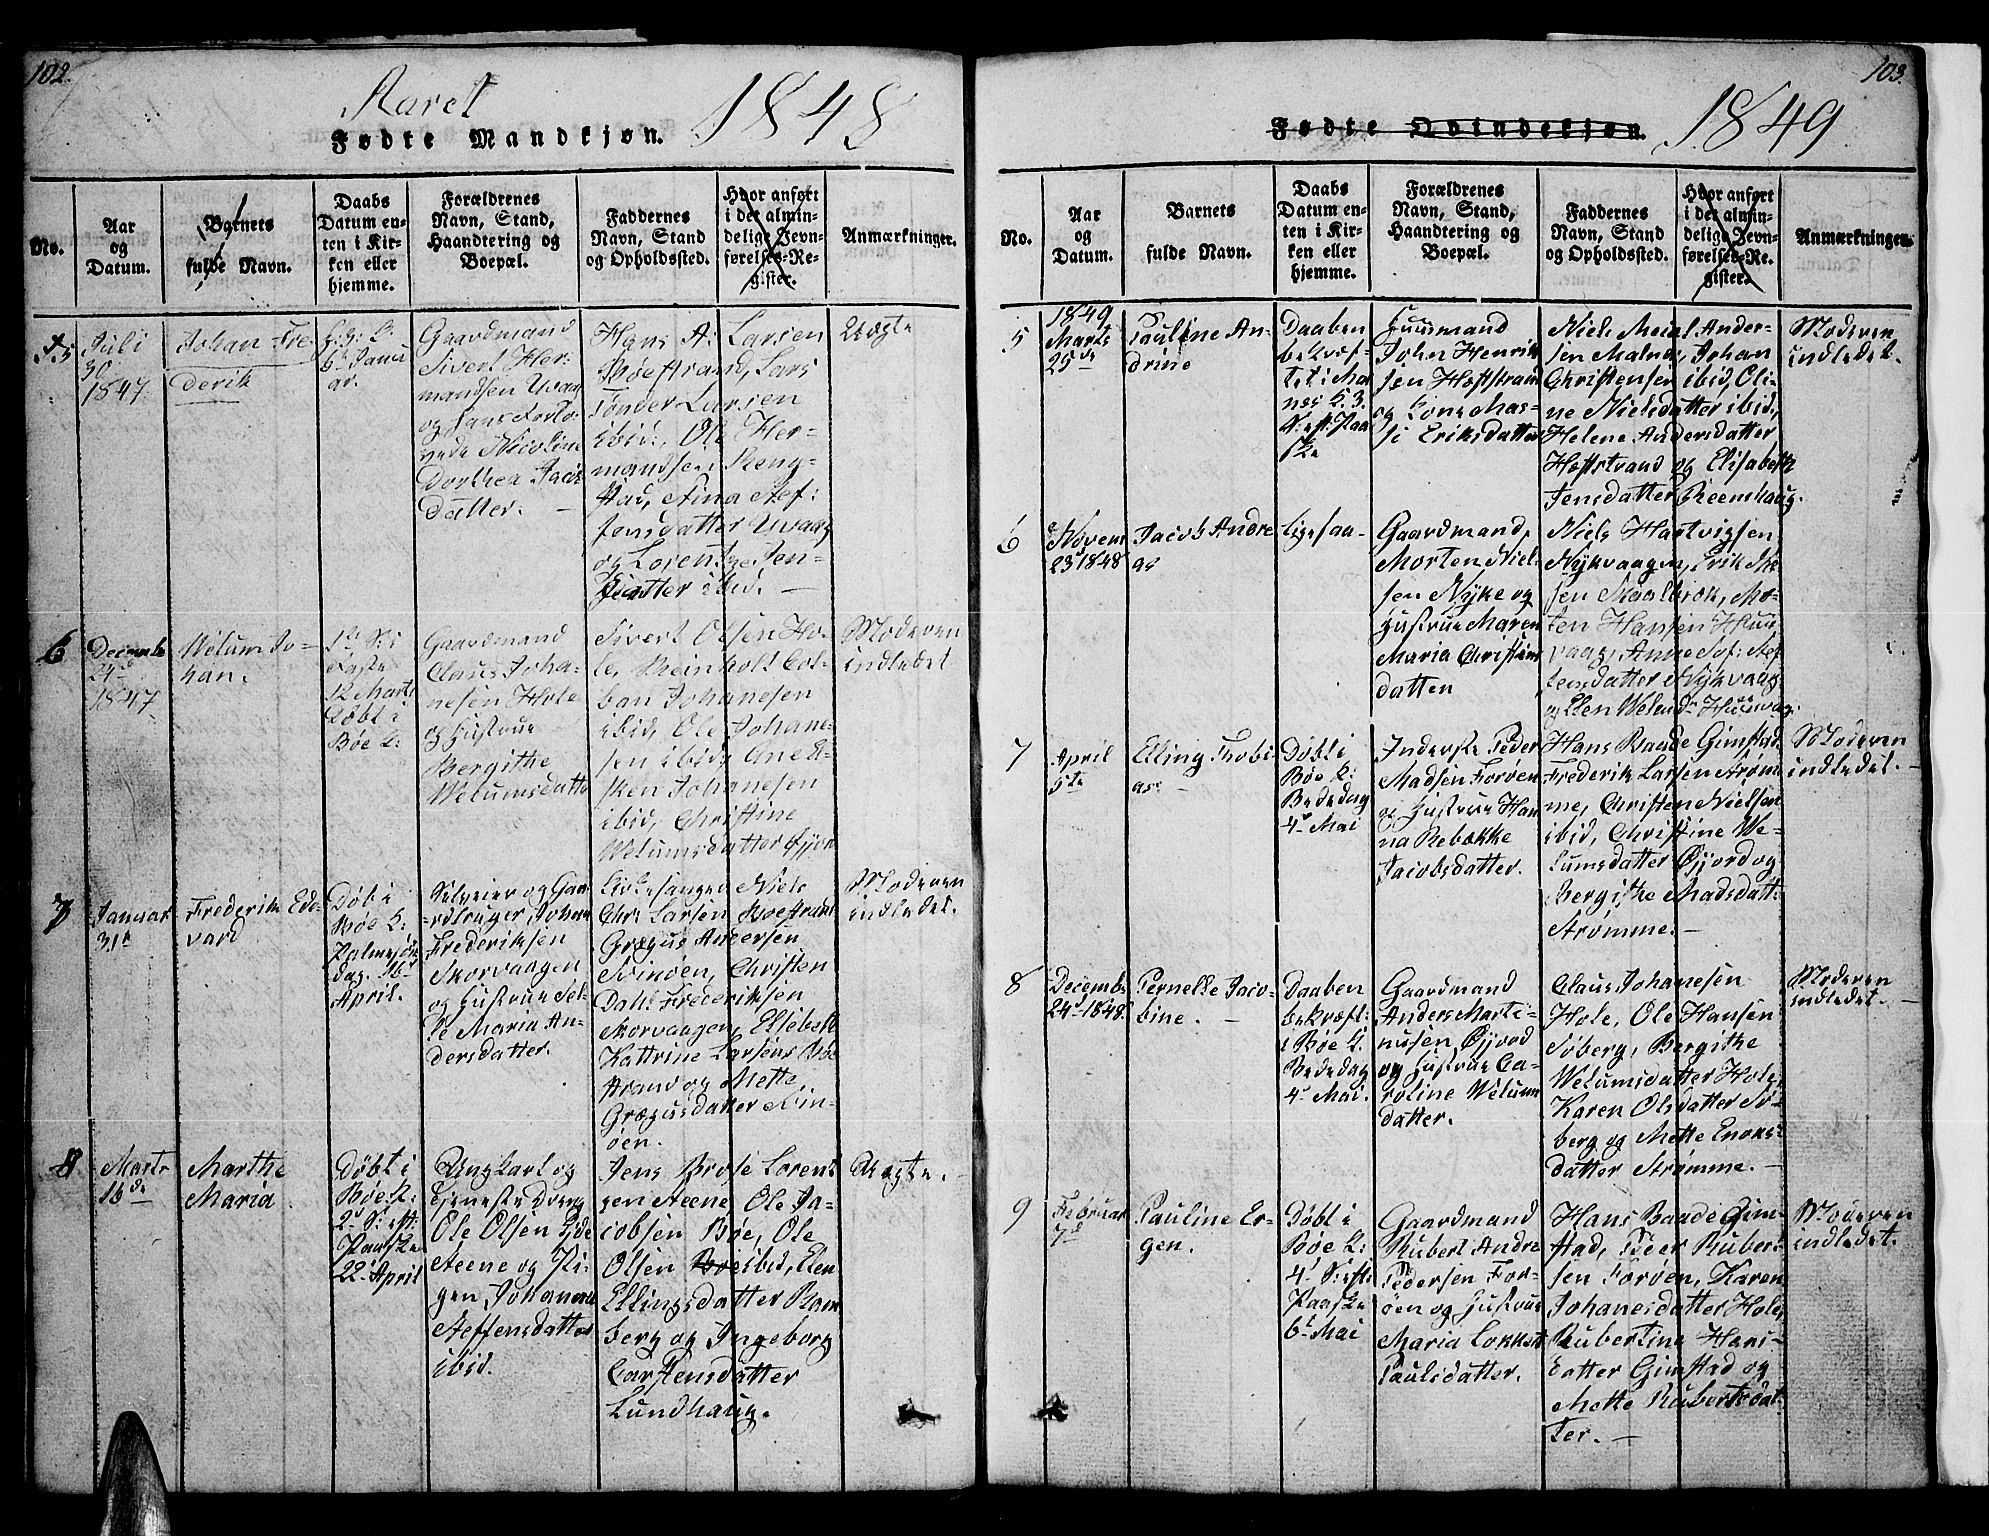 102.
Aaret 1848
Fødte Mandkjøn.
No.
Aar
og
Datum.
Barnets
fulde Navn.
Daabs
Datum en-
ten i Kir-
ken eller
hjemme.
Forældrenes
Navn, Stand,
Haandtering og
Boepæl.
Faddernes
Navn, Stand
og Opholdssted.
Hvor anført
i det almin-
delige Jevn-
førelses-Re-
gister.
Anmærkninger.
5
Juli
30
1847
Johan Fre-
derik
Gaardmand
Sivert Her-
mandsen Uvaag
og
Nicoline
Dorthea
datter. —
Hans A: Larsen
Bøestrand, Lars
Tønder Larsen
ibid:, Ole Her-
mandsen Steng-
stad, Stina Stef:
fensdatter Uvaag
og Lorentze Jen-
datter ibid. —
Uægte
6
Decembr
24d
1847
Welum Jo-
han.
1ste S: i
Faste
12 Marts
Døbt i
Bøe K:
Gaardmand
Claus Joha-
nesen Hole
og Hustrue
Bergithe
Welumsdatter
Sivert Olsen Ho-
le, Reinholt Col-
ban Johanesen
ibid, Ole Johane-
sen ibid, Ane E-
sken Johanesen
ibid, Christine
Welumsdatter Øjjord
Moderen
indledet
7
Januar
31te
Frederik Ed-
vard
Døbt i
Bøe K:
Palmesøn
dag. 16d
April.
Selveier og Gaa-
rdbruger Johan
Frederiksen
Skorvaagen
og Hustrue Sel-
le Maria An-
dersdatter.
Kirkesanger Niels
Chr: Larsen Bøestrand
Græguus Andersen
Svinøen, Christen
Dahl Frederiksen
Skorvaagen, Elsebeth
Kattrine Larsens Bøe
strand og Mette
Græguusdatter Svin-
øen.
Moderen
indledet.
8
Marts
16de
Marthe
Maria
Døbt i
Bøe K:
2d S: eft:
Paaske
22d April
Ungkarl og
tjenestedreng
Ole Olsen
Steene og Pi-
gen Johanna
Steffensdatter
ibid.
Jens Brose Lorent
zen Steene, Ole Ja-
cobsen Bøe, Ole
Olsen ibid, Elen
Ellingsdatter Ram
berg og Ingeborg
Carstensdatter
Lundhaug.
Uægte. —
103.
Fødte Qvindekjøn. 1849
No.
Aar
og
Datum.
Barnets
fulde Navn.
Daabs
Datum en-
ten i Kir-
ken eller
hjemme.
Forældrenes
Navn, Stand,
Haandtering og
Boepæl.
Faddernes
Navn, Stand
og Opholdssted.
Hvor anført
i det almin-
delige Jevn-
førelses-Re-
gister.
Anmærkninger.
5
1849
Marts
25de
Pauline An-
drine
Daaben
bekræf-
tet i Mal
næs K. 3.
S: eft: Paa
ske
Huusmand
John Henrik
sen Hæstrand
og Kone Mas-
si Eriksdatter
Niels Meier Ander-
sen Malnæs, Johan
Christensen ibid, Oli-
ne Nielsdatter ibid,
Helene Andersdatter
Hæstrand og Elisabeth
Jensdatter Reenshaug.
Moderen
indledet.
6
Novem
23d 1848
Jacob Andre
as
ligesaa
Gaardmand,
Morten Niel-
sen Nyke og
Hustrue Maren
Maria Christens
datter
Niels Hartvigsen
Nykvaagen, Erik
sen Skaalbræk, Mo-
ten Hansen Huu
vaag, Anne Sof: Stef
fensdatter Nykvaag
og Elen Welumsdr Huusvaag.
7
April
5te
Elling Tobi-
as. —
Døbt i
Bøe K:
Bededag
4d Mai
Inderste Peder
Madsen Forøen
og Hustrue Han
na Rebække
Jacobsdatter.
Hans Baade Gimstad
Frederik Larsen Strøm
me, Christen Nielsen
ibid, Christine We-
lumsdatter Øjjord og
Bergithe Madsdatt-
Strømme. —
Moderen
indledet. —
8
Decemb
24d 1848.
Pernelle Jaco-
bine. —
Daaben
bekræft:
i Bøe K.
Bededag
4d Mai.
Gaardmand
Anders Marti-
nusen Øjjord
og Hustrue Ca-
roline Welums
datter.
Claus Johanesen
Hole, Ole Hansen
Søberg, Bergithe
Welumsdatter Hole,
Karen Olsdatter Sø-
berg og Mette Enoks-
datter Strømme. —
Moderen
indledet. —
9
Februar
7d
Pauline Er-
gen.
Døbt i
Bøe K:
4d S: eft:
Paaske
6d Mai
Gaardmand
Rubert Andre
Pedersen For-
øen og Hustrue
Maria Lokket
Paulsdatter.
Hans Baade Gim-
stad, Peer Rubert
sen Forøen, Karen
Johanesdatter Hole,
Rubertine Hans-
datter Gimstad og
Mette Rubertsdat-
ter. —
Moderen
indledet.